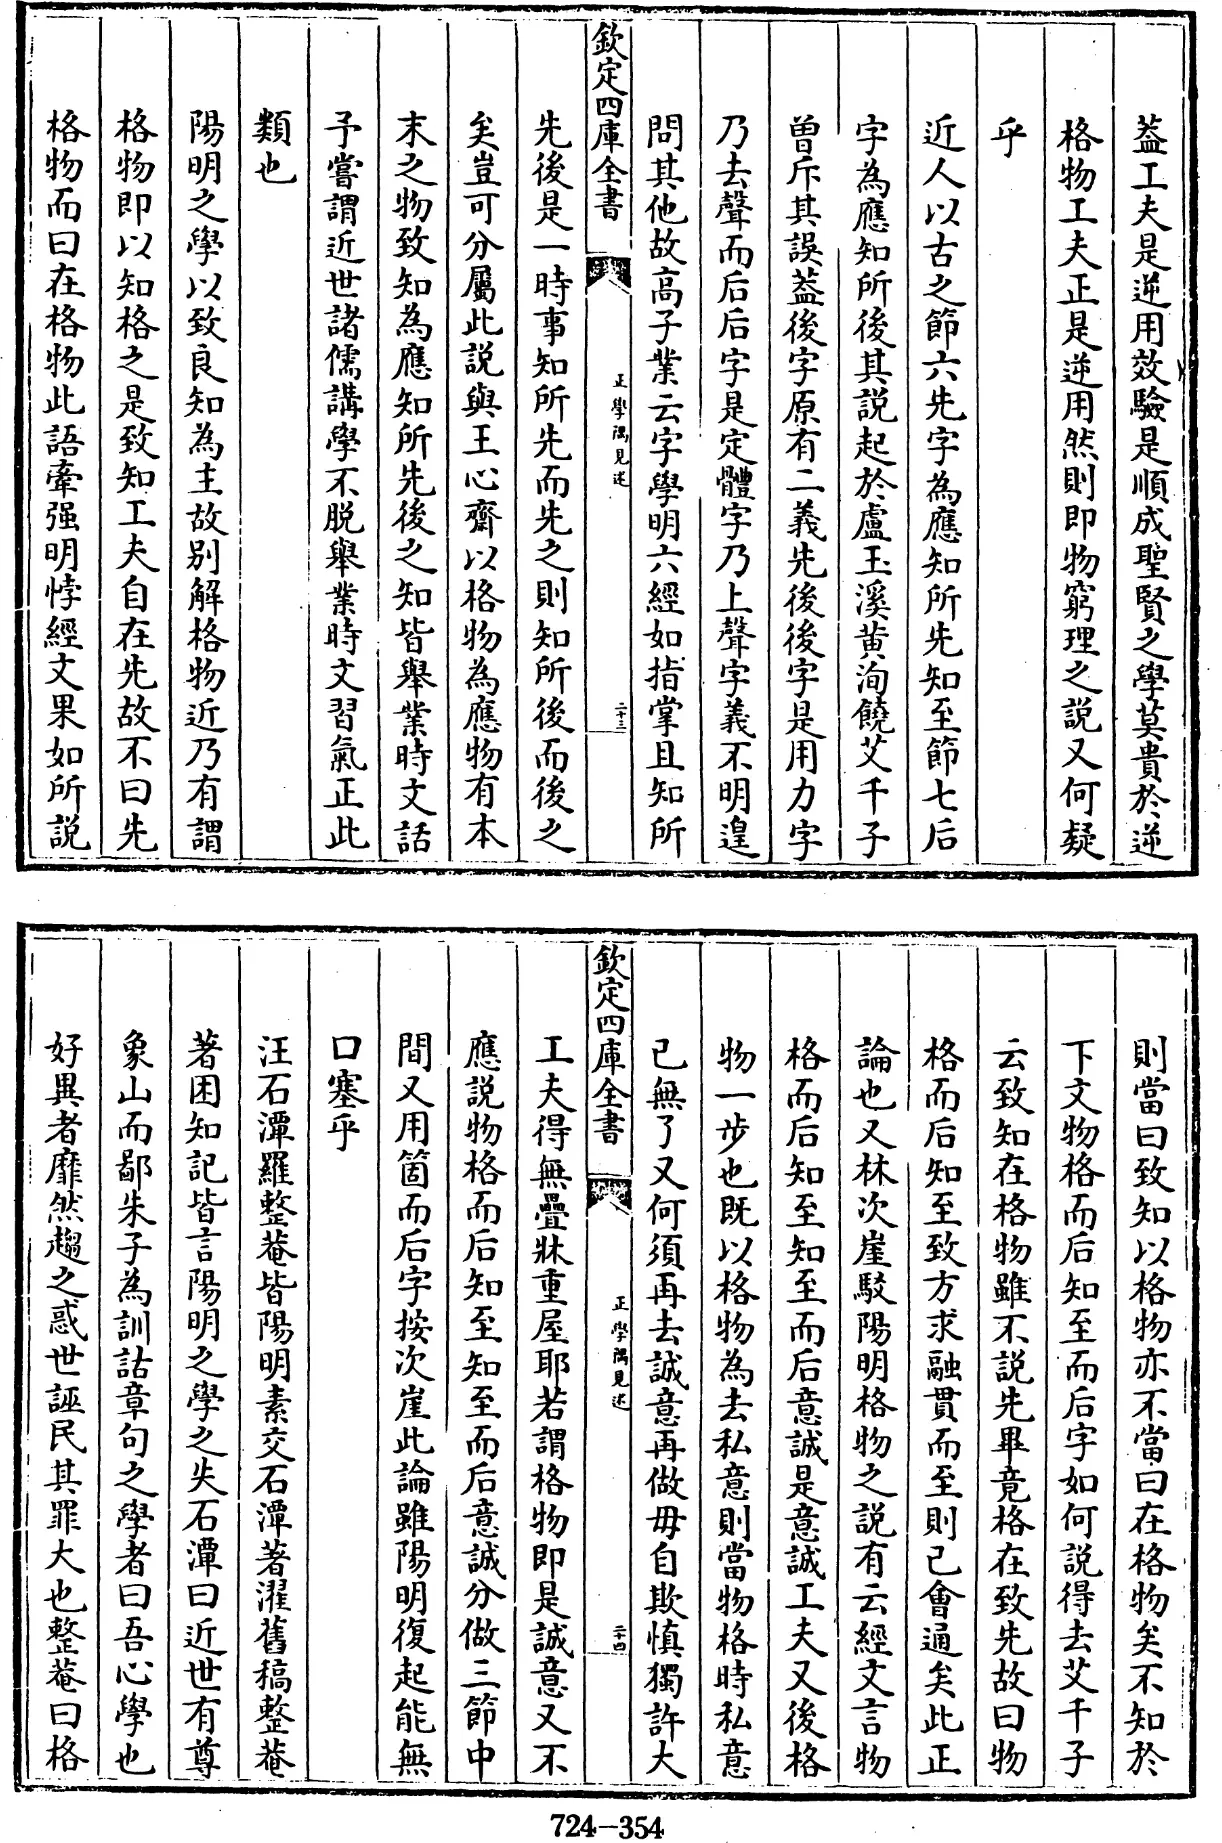 葢工夫是逆用效驗是順成聖賢之學莫貴於逆
格物工夫正是逆用然則即物窮理之説又何疑
乎
近人以古之節六先字為應知所先知至節七后
字為應知所後其説起於盧玉溪黄洵饒艾千子
曽斥其誤葢後字原有二義先後後字是用力字
乃去聲而后后字是定體字乃上聲字義不明遑
問其他故高子業云字學明六經如指掌且知所
欽定四庫全書
正學隅見述
二十三
先後是一時事知所先而先之則知所後而後之
矣豈可分屬此説與王心齋以格物為應物有本
末之物致知為應知所先後之知皆舉業時文話
予嘗謂近世諸儒講學不脱舉業時文習氣正此
類也
陽明之學以致良知為主故别解格物近乃有謂
格物即以知格之是致知工夫自在先故不曰先
格物而曰在格物此語牽强明悖經文果如所説
則當曰致知以格物亦不當曰在格物矣不知於
下文物格而后知至而后字如何説得去艾千子
云致知在格物雖不説先畢竟格在致先故曰物
格而后知至致方求融貫而至則已會通矣此正
論也又林次崖駁陽明格物之説有云經文言物
格而后知至知至而后意誠是意誠工夫又後格
物一步也既以格物為去私意則當物格時私意
已無了又何須再去誠意再做毋自欺慎獨許大
欽定四庫全書
正學隅見述
二十四
工夫得無疊牀重屋耶若謂格物即是誠意又不
應説物格而后知至知至而后意誠分做三節中
間又用箇而后字按次崖此論雖陽明復起能無
口塞乎
汪石潭羅整菴皆陽明素交石潭著濯舊稿整菴
著困知記皆言陽明之學之失石潭曰近世有尊
象山而鄙朱子為訓詁章句之學者曰吾心學也
好異者靡然趨之惑世誣民其罪大也整菴曰格
724-354